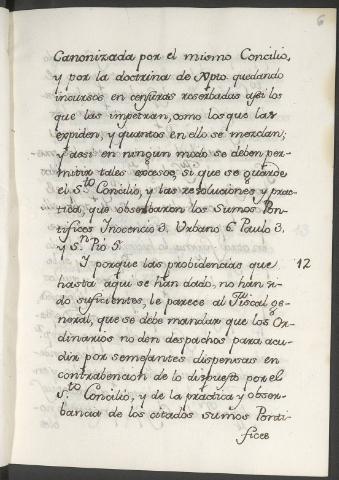 6
Canonizada por el mismo Concilio,
y por la doctrina de Xpto. quedando
incursos en censuras reserbadas assi los
que las impetran, como los que las
expiden, y quantos en ello se mezclan;
y assi en ningun modo se deben per-
mitir tales excesos, si que se guarde
el S.to Concilio, y las resoluciones y prac-
tica, que obserbaron los Sumos Pon-
tifices Inocencio 3. Urbano 6. Paulo 3.
y S.n Pio 5.
Y porque las probidencias que 12
hasta aqui se han dado, no han si-
do suficientes, le parece al Fiscal ge-
neral, que se debe mandar que los Or-
dinarios no den despachos para acu-
dir por semejantes dispensas en
contrabencion de lo dispuesto por el
S.to Concilio, y de la practica y obser-
bancia de los citados sumos Ponti-
fices